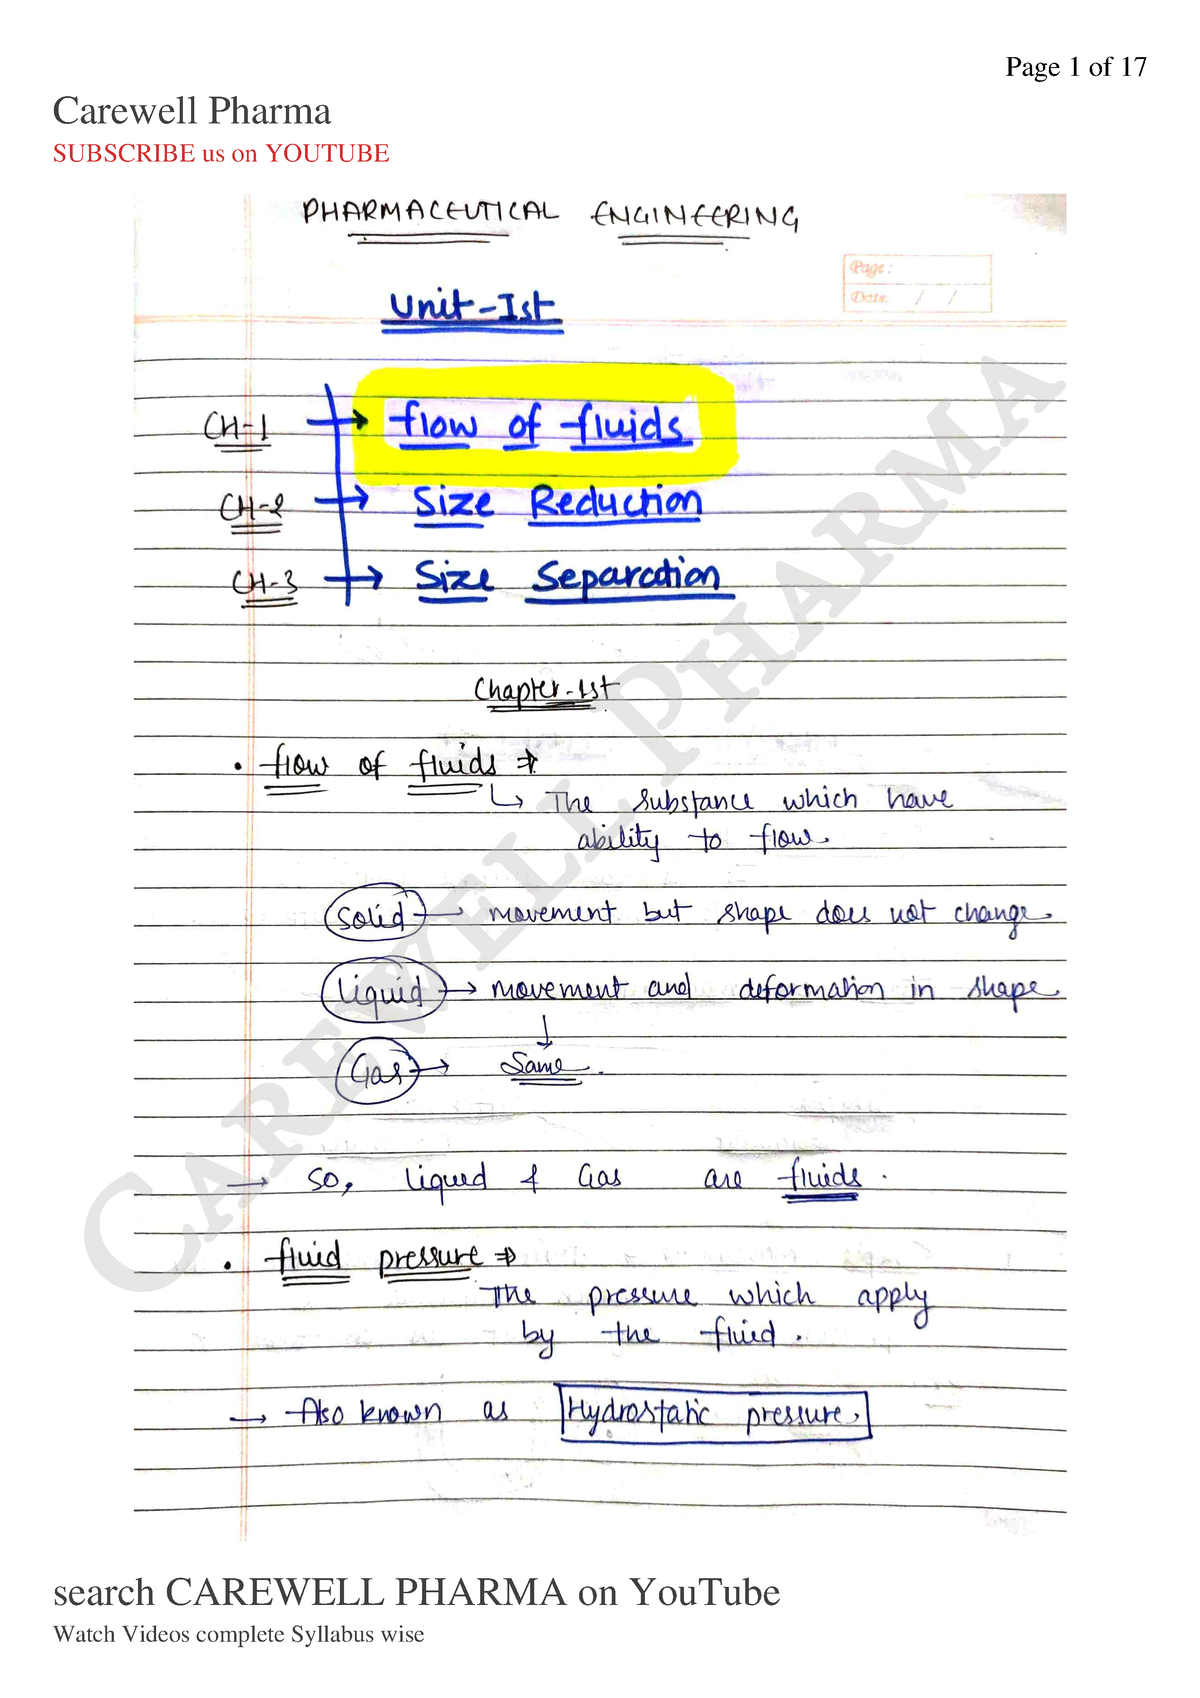 Page 1 of 17
Carewell Pharma
SUBSCRIBE us on YOUTUBE
PHARMACEUTICAL ENGINEERING
Page:
Date / /
Unit-Ist
CH-1 → flow of fluids
CH-2 → Size Reduction
CH-3 → Size Separation
Chapter-1st
• flow of fluids ⇒
↳ The substance which have
ability to flow.
Solid → movement but shape does not change.
Liquid → movement and deformation in shape
↓
Gas → Same.
→ So, Liquid & Gas are fluids.
• fluid pressure ⇒
The pressure which apply
by the fluid.
→ Also known as Hydrostatic pressure.
CAREWELL PHARMA
search CAREWELL PHARMA on YouTube
Watch Videos complete Syllabus wise